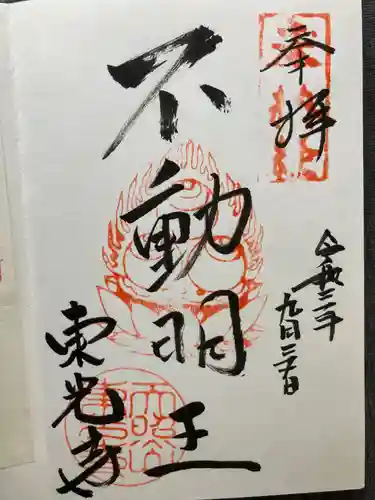 奉拝
令和三年
九月二十五日
不動明王
東光寺